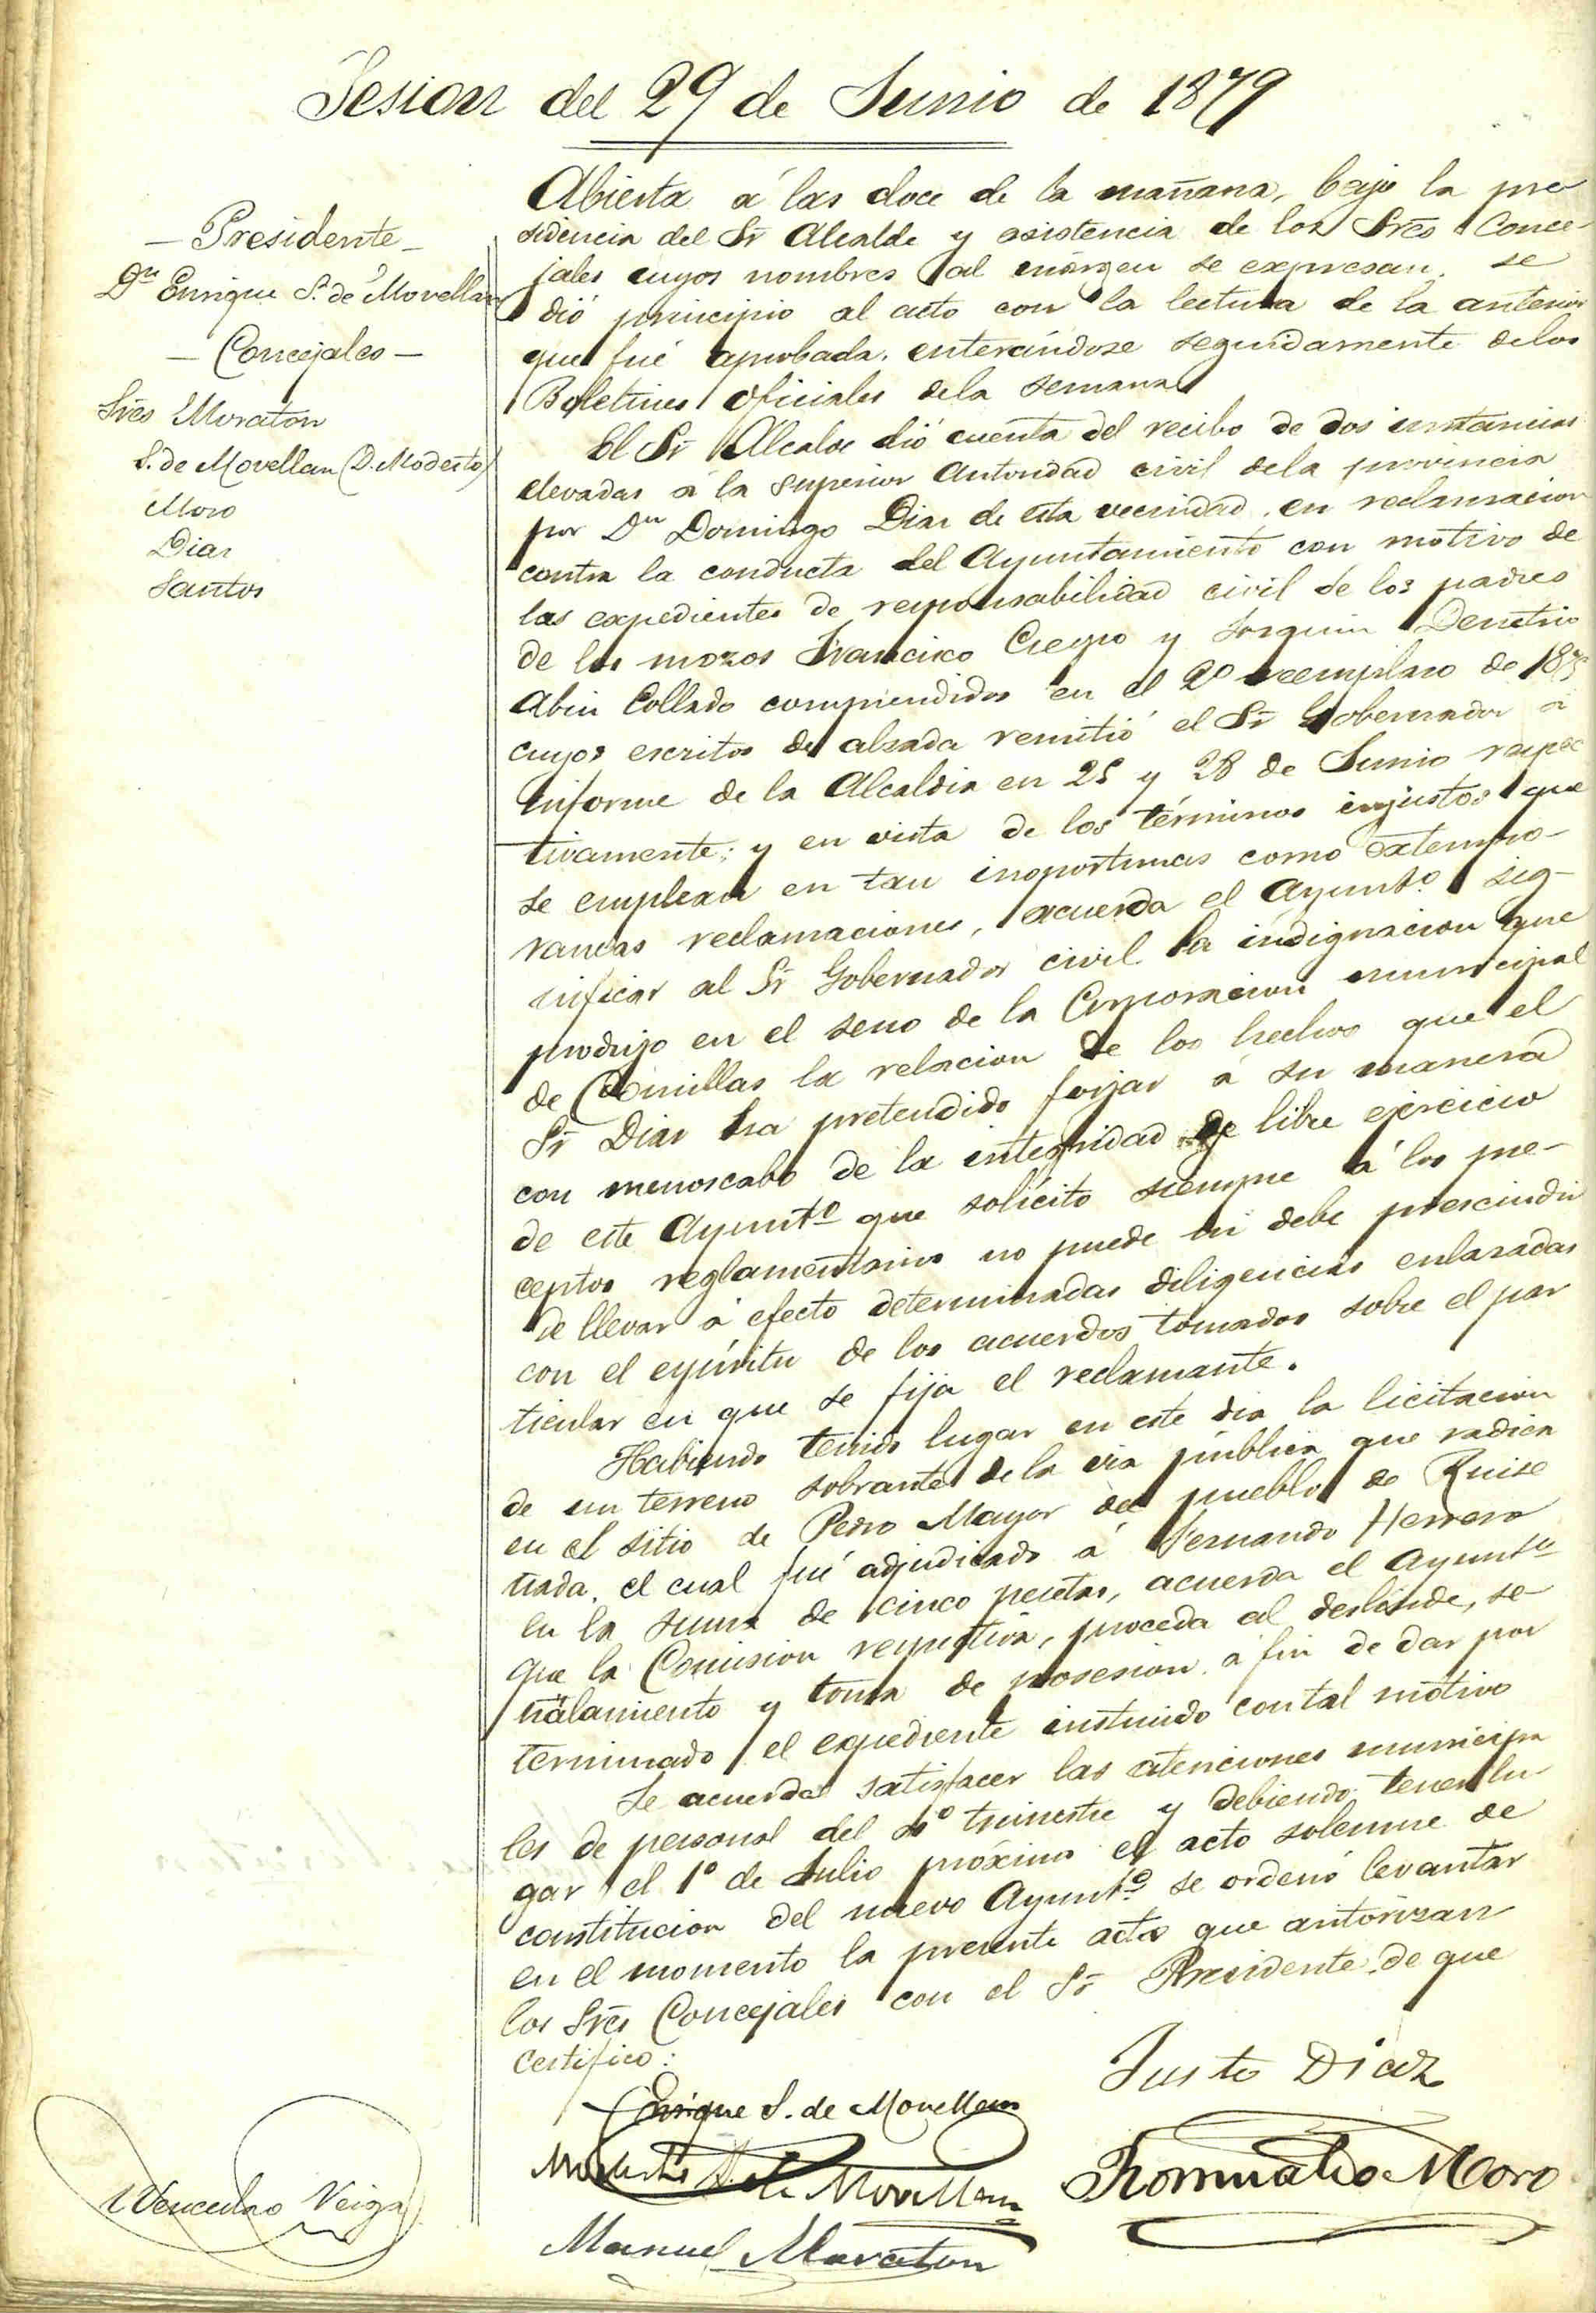 Sesion del 29 de Junio de 1879
— Presidente —
Dn Enrique S. de Movellan
— Concejales —
Sres Moraton
S. de Movellan (D. Modesto)
Moro
Diaz
Santos
Abierta á las doce de la mañana, bajo la pre-
sidencia del Sr Alcalde y asistencia de los Sres Conce-
jales cuyos nombres al márgen se expresan, se
dió principio al acto con la lectura de la anterior
que fué aprobada, enterándose seguidamente delos
Boletines oficiales dela semana
El Sr Alcalde dió cuenta del recibo de dos instancias
elevadas á la superior autoridad civil dela provincia
por Dn Domingo Diaz de esta vecindad, en reclamacion
contra la conducta del Ayuntamiento con motivo de
los expedientes de responsabilidad civil de los padres
de los mozos Francisco Crespo y Joaquin Demetrio
Abin Collado comprendidos en el 2º reemplazo de
cuyos escritos de alzada remitió el Sr Gobernador á
informe de la Alcaldia en 25 y 28 de Junio respec
tivamente; y en vista de los términos injustos que
se emplean en tan inoportunas como extempo-
raneas reclamaciones, acuerda el Ayunto sig-
nificar al Sr Gobernador civil la indignacion que
produjo en el seno de la Corporacion municipal
de Comillas la relacion de los hechos que el
Sr Diaz ha pretendido forjar á su manera
con menoscabo de la integridad de libre ejercicio
de este Ayunto que solícito siempre á los pre-
ceptos reglamentarios no puede ni debe prescindir
de llevar á efecto determinadas diligencias enlazadas
con el espíritu de los acuerdos tomados sobre el par
ticular en que se fija el reclamante.
Habiendo tenido lugar en este dia la licitacion
de un terreno sobrante dela via pública que radica
en el sitio de Pedro Mayor del pueblo de Ruise
ñada, el cual fué adjudicado á Fernando Herrero
en la suma de cinco pesetas, acuerda el Ayunto
que la Comision respectiva, proceda al deslinde, se-
ñalamiento y toma de posesion á fin de dar por
terminado el expediente instruido contal motivo
Se acuerda satisfacer las atenciones municipa
les de personal del 4º trimestre y debiendo tener lu-
gar el 1º de Julio próximo el acto solemne de
constitucion del nuevo Ayunto se ordenó levantar
en el momento la presente acta que autorizan
los Sres Concejales con el Sr Presidente, de que
certifico:
Justo Diaz
Enrique S. de Movellan
Modesto S. de Movellan
Romualdo Moro
Wenceslao Veiga
Manuel Moraton